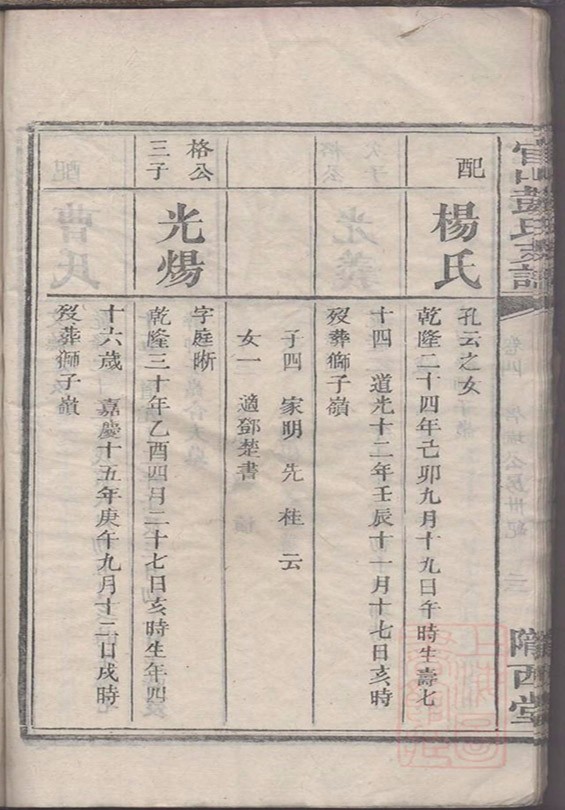 官山彭氏支譜
隴西堂
配
楊氏
孔云之女
乾隆二十四年己卯九月十九日午時生壽七
十四 道光十二年壬辰十一月十七日亥時
歿葬獅子嶺
子四 家明 先 桂 云
女一 適鄧楚書
格公
三子
光煬
字庭晣
乾隆三十年乙酉四月二十七日亥時生年四
十六歲 嘉慶十五年庚午九月十二日戌時
歿葬獅子嶺